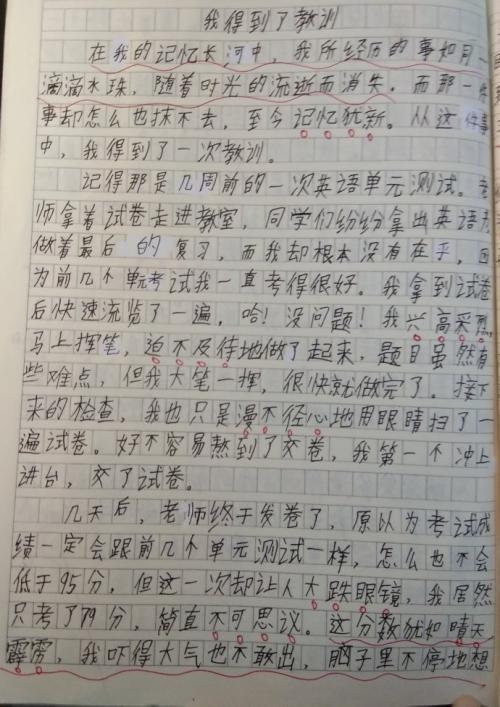 我得到了教训
在我的记忆长河中，我所经历的事如同一
滴滴水珠，随着时光的流逝而消失。而那一件
事却怎么也抹不去，至今记忆犹新。从这件事
中，我得到了一次教训。
记得那是几周前的一次英语单元测试。老
师拿着试卷走进教室，同学们纷纷拿出英语书
做着最后的复习，而我却根本没有在乎，因
为前几个单考试我一直考得很好。我拿到试卷
后快速流览了一遍，哈！没问题！我兴高采烈
马上挥笔，迫不及待地做了起来，题目虽然有
些难点，但我大笔一挥，很快就做完了。接下
来的检查，我也只是漫不径心地用眼睛扫了一
遍试卷。好不容易熬到了交卷，我第一个冲上
讲台，交了试卷。
几天后，老师终于发卷了，原以为考试成
绩一定会跟前几个单元测试一样，怎么也不会
低于95分，但这一次却让人大跌眼镜，我居然
只考了79分，简直不可思议。这分数犹如晴天
霹雳，我吓得大气也不敢出，脑子里不停地想